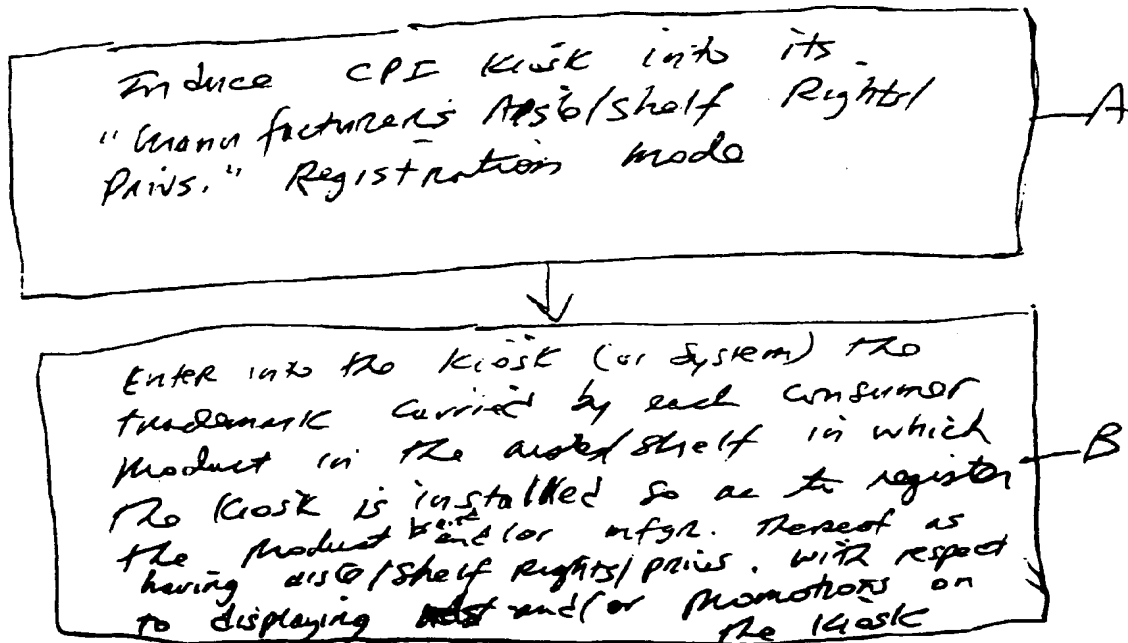 Induce CPI Kiosk into its
"Manufacturer's Aisle/Shelf Rights/
Privs." Registration mode
A
Enter into the Kiosk (or System) the
trademark carried by each consumer
product in the aisle/shelf in which
the Kiosk is installed so as to register
the product and/or mfgr. thereof as
having aisle/shelf Rights/privs. with respect
to displaying and/or promotions on
the Kiosk
B